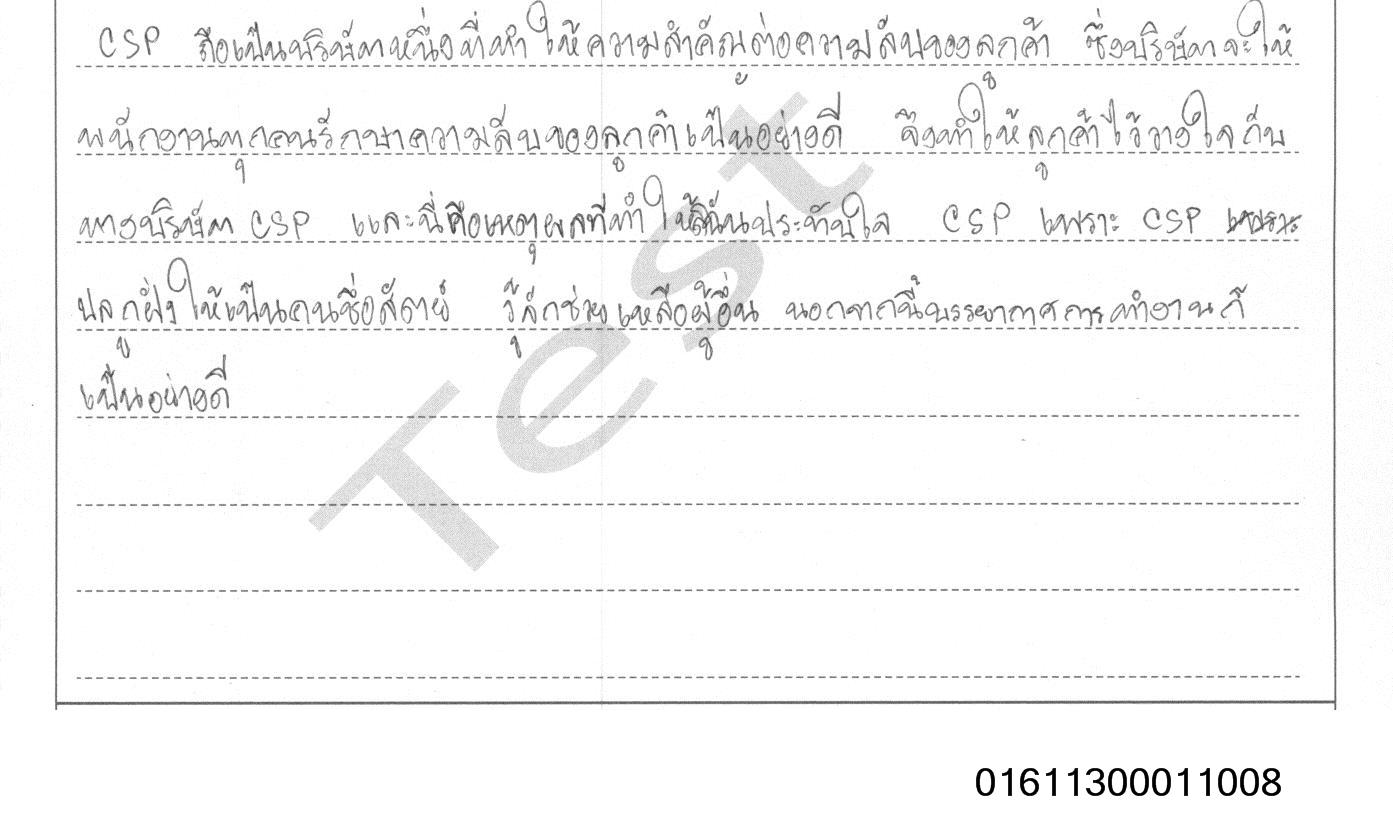 CSP ถือเป็นบริษัทหนึ่งที่ทำให้ความสำคัญต่อความลับของลูกค้า ซึ่งบริษัทจะให้
พนักงานทุกคนรักษาความลับของลูกค้าเป็นอย่างดี จึงทำให้ลูกค้าไว้วางใจกับ
ทางบริษัท CSP และนี่คือเหตุผลที่ทำให้ฉันประทับใจ CSP เพราะ CSP เพราะ
ปลูกฝังให้เป็นคนซื่อสัตย์ รู้จักช่วยเหลือผู้อื่น นอกจากนี้บรรยากาศการทำงานก็
เป็นอย่างดี
Test
01611300011008